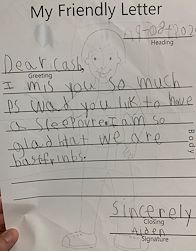 My Friendly Letter
Heading
Dear Cash,
Greeting
I mis you so much
Ps wad you lik to have
a sleepovre. I am so
glad htat we are
bastfrinbs.
Body
Sincerely
Closing
Aiden
Signature